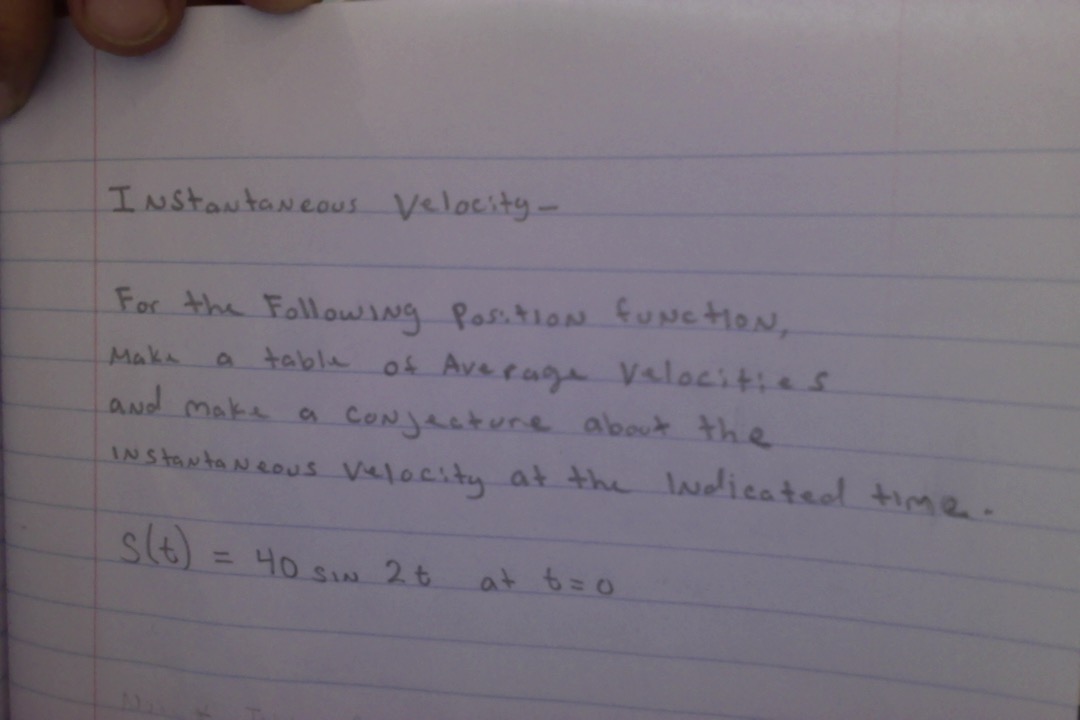 Instantaneous Velocity-
For the Following Position function,
Make a table of Average Velocities
and make a conjecture about the
instantaneous velocity at the indicated time.
S(t) = 40 sin 2t at t=0